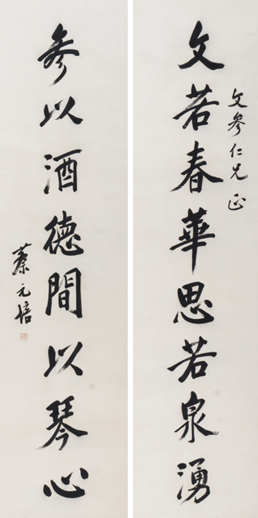 文若春華思若泉湧
文參仁兄正
參以酒德間以琴心
蔡元培